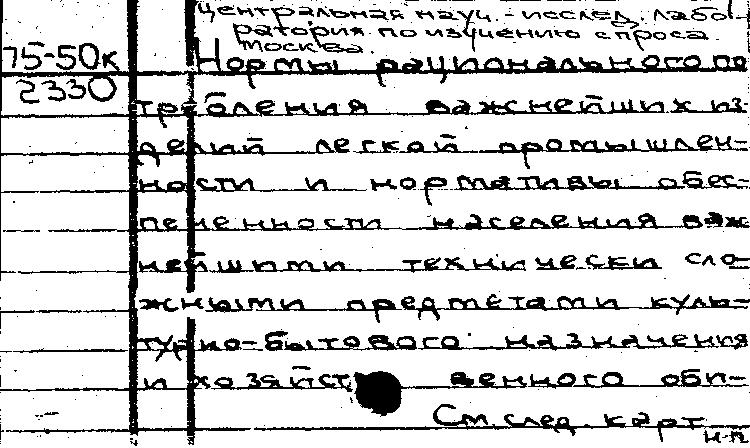 Центральная науч.-исслед. лабо-
ратория по изучению спроса.
Москва.
75-50к
Нормы рационального по
2330
требления важнейших из
делий легкой промышлен-
ности и нормативы обес-
печенности населения важ
нейшими технически сло-
жными предметами куль-
турно-бытового назначения
и хозяйственного оби-
См. след. карт.
н-п